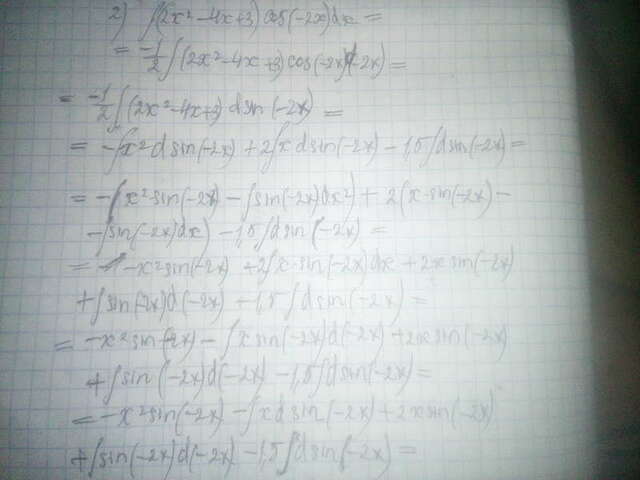 2) ∫(2x²-4x+3)cos(-2x)dx=
= -1/2 ∫(2x²-4x+3)cos(-2x)d(-2x)=
= -1/2 ∫(2x²-4x+3)dsin(-2x)=
= -∫x²dsin(-2x)+2∫xdsin(-2x)-1,5∫dsin(-2x)=
= -(x²sin(-2x)-∫sin(-2x)dx²)+2(x·sin(-2x)-
-∫sin(-2x)dx)-1,5∫dsin(-2x)=
= -x²sin(-2x)+2∫x·sin(-2x)dx+2xsin(-2x)
+∫sin(-2x)d(-2x)-1,5∫dsin(-2x)=
= -x²sin(-2x)-∫xsin(-2x)d(-2x)+2xsin(-2x)
+∫sin(-2x)d(-2x)-1,5∫dsin(-2x)=
= -x²sin(-2x)-∫xdsin(-2x)+2xsin(-2x)
+∫sin(-2x)d(-2x)-1,5∫dsin(-2x)=